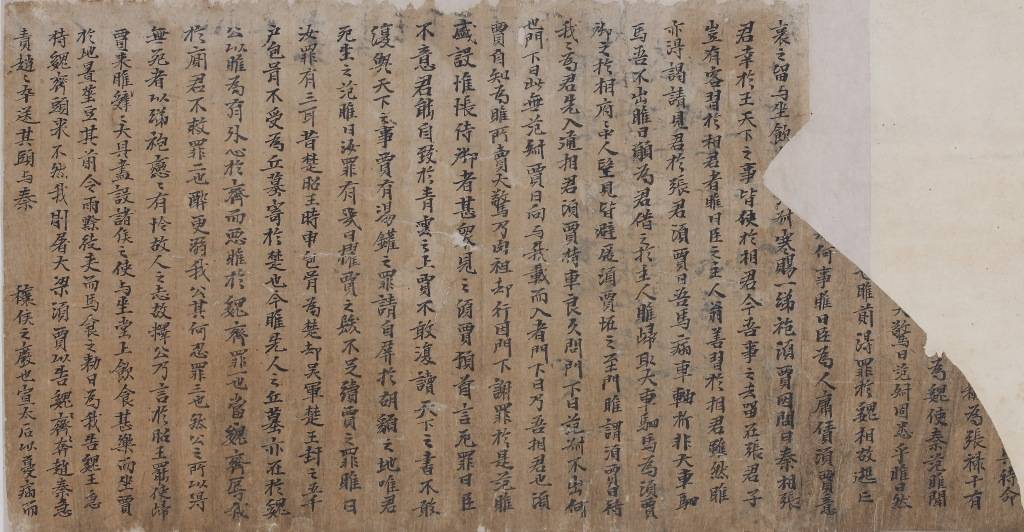 其待命
稱為張祿十有
為魏使秦范睢聞
大驚曰范叔固恙乎睢曰然
也睢前得罪於魏相故逃亡
何事睢曰臣為人庸債須賈意
哀之留与坐飲 寒賜一綈袍須賈因問曰秦相張
君幸於王天下之事皆決於相君今吾事之去留在張君子
豈有客習於相君者睢曰臣之主人翁善習於相君雖然睢
亦得謁請見君於張君須賈曰吾馬病車軸折非大車駟
馬吾不出睢曰願為君借之於主人睢歸取大車駟馬為須賈
御之於相府之中人望見皆避匿須賈怪之至門睢謂須賈曰待
我々為君先入通相君須賈待車良久問門下曰范叔不出何
也門下曰此無范叔賈曰向与我載而入者門下曰乃吾相君也須
賈自知為睢所賣大驚乃肉袒却行因門下謝罪於是范睢
盛設惟張待御者甚眾見之須賈頓首言死罪曰臣
不意君能自致於青雲之上賈不敢復讀天下之書不敢
復与天下之事賈有湯鑊之罪請自屏於胡貉之地唯君
死生之范睢曰汝罪有幾曰擢賈之髮不足續賈之罪睢曰
汝罪有三耳昔楚昭王時申包胥為楚却吳軍楚王封之五千
戶包胥不受為丘墓寄於楚也今睢先人之丘墓亦在於魏
公以睢為有外心於齊而惡睢於魏齊罪一也當魏齊辱我
於廁君不救罪二也醉更溺我公其何忍罪三也然公之所以得
無死者以綈袍戀々有怜故人之志故釋公乃言於昭王罷使歸
賈來睢辤之大具盡設諸侯之使与坐堂上飲食甚樂而坐賈
於地置莝豆其前令兩黥徒夾而馬食之勑曰為我告魏王急
持魏齊頭來不然我則屠大梁須賈以告魏齊奔趙秦急
責趙々卒送其頭与秦 穰侯之廢也宣太后以憂病而